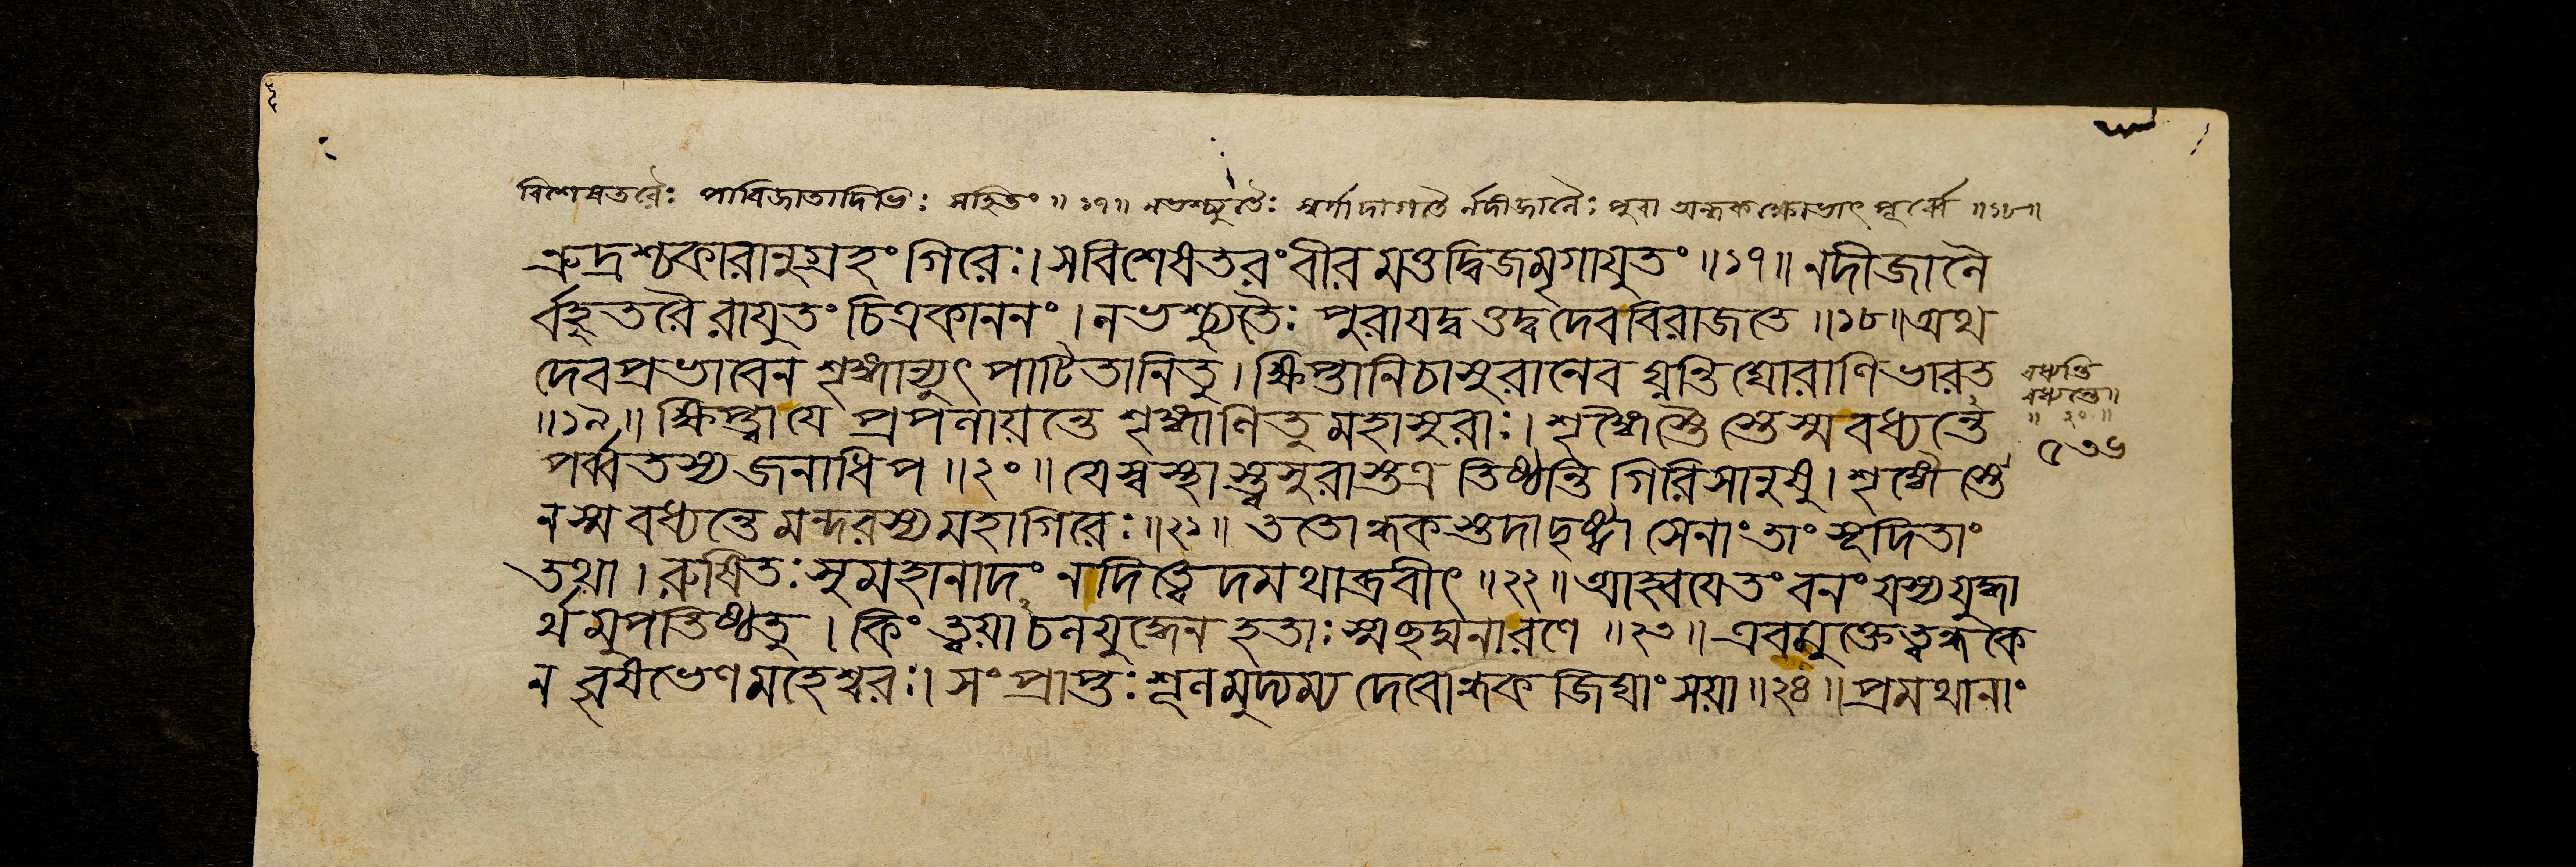 বিশেষতরৈঃ পারিজাতাদিভিঃ সহিতং ॥ ১৭॥ নভশ্চ্যুতৈঃ স্বর্গাদাগতৈ র্নদীজানৈঃ পুরা অন্ধকক্ষোভাৎ পূর্ব্বে ॥১৮॥
রুদ্রশ্চকারানুগ্রহং গিরেঃ। সবিশেষতরং বীর মত্তদ্বিজমৃগাযুতং ॥১৭॥ নদীজানৈ
র্বহুতরৈ রাযুতং চিত্রকাননং । নভশ্চ্যুতৈঃ পুরাযদ্ব ত্তদ্বদেববিরাজতে ॥১৮॥ অথ
দেবপ্রভাবেন শৃঙ্গান্যুৎ পাটিতানিতু। ক্ষিপ্তানিচাসুরানেব ঘ্নন্তি ঘোরাণিভারত
॥১৯॥ ক্ষিপ্ত্বাযে প্রপলায়ন্তে শৃঙ্গাণিতু মহাসুরাঃ। শৃঙ্গৈস্তৈ স্তেস্ম বধ্যন্তে
পর্ব্বতস্য জনাধিপ ॥২০॥ যেস্বস্থাস্ত্বসুরাস্তত্র তিষ্ঠন্তি গিরিসানুষু। শৃঙ্গৈস্তৈ
নস্ম বধ্যন্তে মন্দরস্য মহাগিরেঃ ॥২১॥ ততোন্ধকস্তদাদৃষ্ট্বা সেনাং তাং সূদিতাং
তথা । রুষিতঃ সুমহানাদং নাদিত্বেদমথাব্রবীৎ ॥২২॥ আহ্বযেতং বনং যস্য যুদ্ধা
র্থমুপতিষ্ঠতু । কিং ত্বয়াচলযুদ্ধেন হতাঃ স্মছদ্মনারণে ॥২৩॥ এবমুক্তেত্বন্ধকে
ন বৃষভেণ মহেশ্বরঃ। সংপ্রাপ্তঃ শূলমুদ্যম্য দেবোন্ধক জিঘাংসয়া ॥২৪॥ প্রমথানাং
বধ্যন্তি
বধ্যন্তে॥
॥ ২০ ॥
৫৩৬